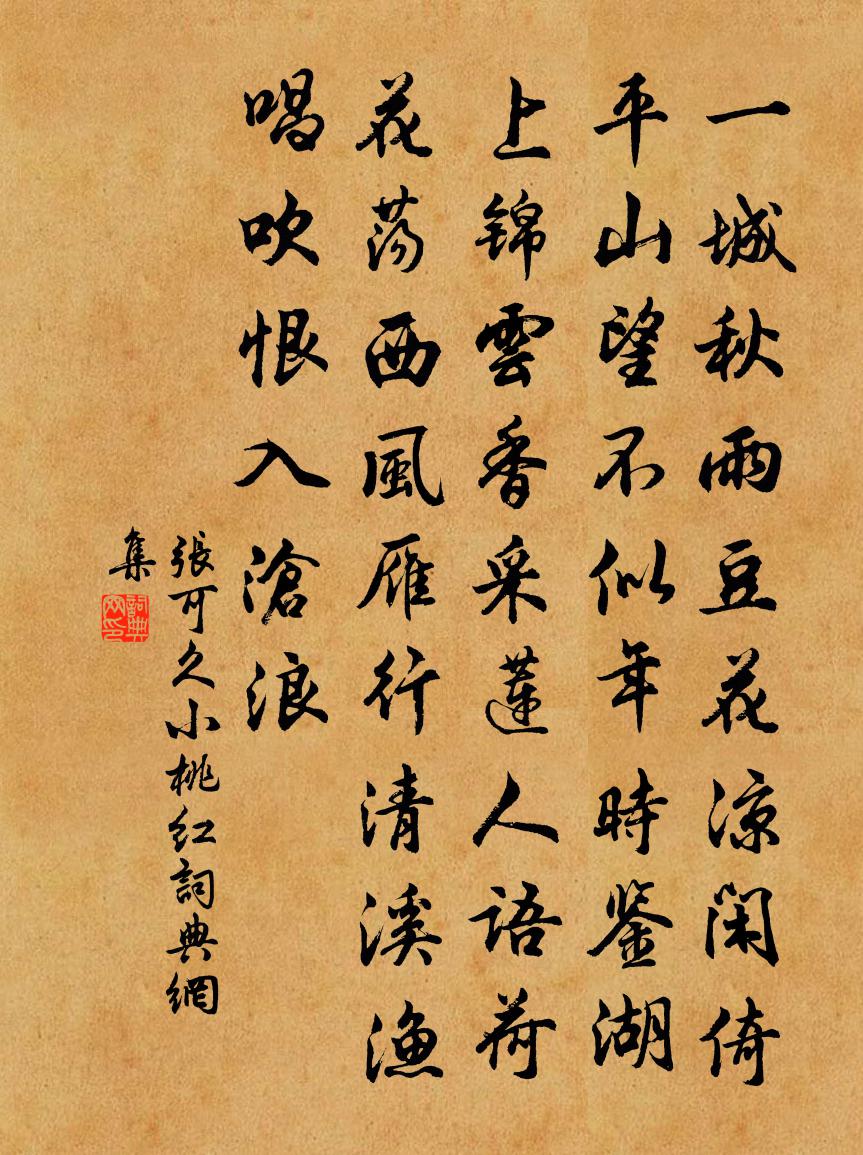 一城秋雨豆花涼閑倚
平山望不似年時鑒湖
上錦雲香采蓮人語荷
花蕩西風雁行清溪漁
唱吹恨入滄浪
張可久小桃红詞典網
集
詞典
网印